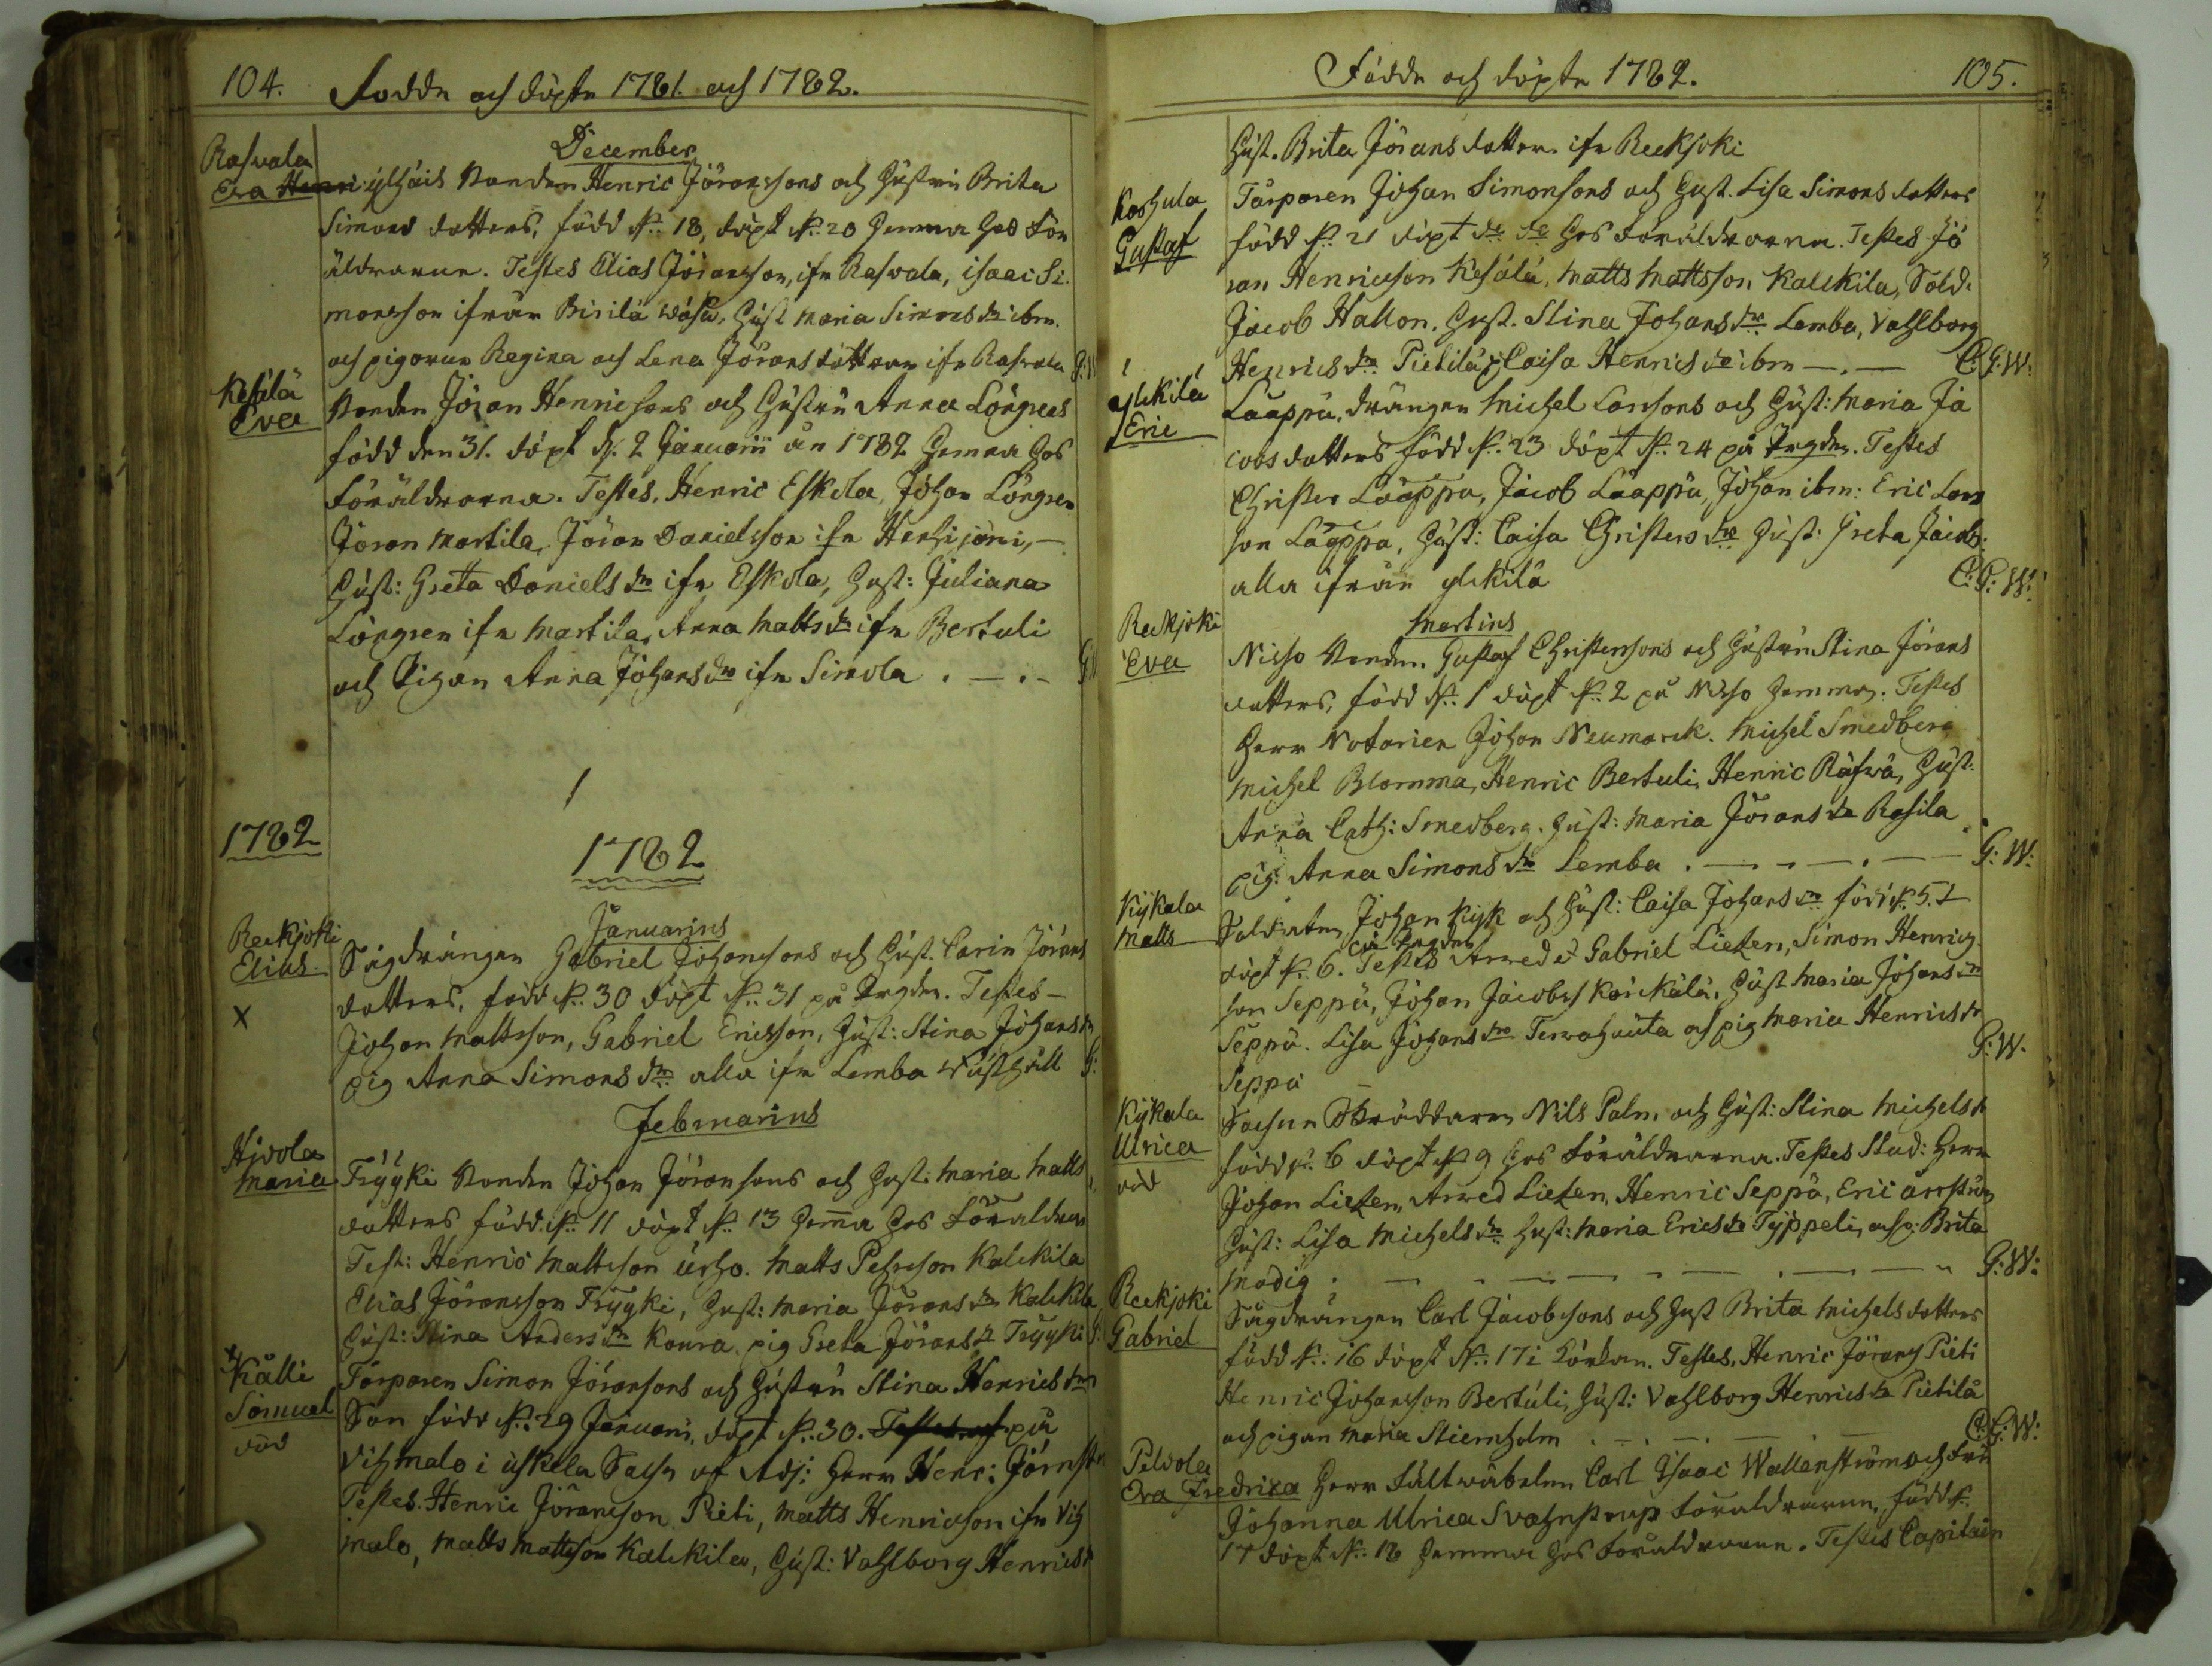 104. Födde och döpte 1781. och 1782.
December
Rasvala
Eva Henric ylhäis Bonden Henric Jöranssons och Hustrun Brita
Simons dotters, född d. 18, döpt d. 20 hemma hos För
äldrarne. Testes Elias Jöransson, ifr Rasvala, isaac Si-
monsson ifrån Birilä Wåsa, Hust Maria Simons dr ibm.
och pigorne Regina och Lena Jörans döttrar ifr Rasvala G:W
Kesälä
Eva
Bonden Jöran Henricssons och Hustru Anna Löngrens
född den 31. döpt d. 2 Januarii år 1782 hemma hos
Föräldrarna. Testes, Henric Eskola, Johan Löngren
Jöran Martila, Jöran Danielsson ifr Henhijoni, —
Hust: Greta Daniels dr ifr Eskola, Hust: Juliana
Löngren ifr Martila, Anna Matts dr ifr Bertuli
och Pigan Anna Johans dr ifr Simola . — . - G:
1782
1782
Januarius
Reckjoki
Elias
X
Sågdrängen Gabriel Johanssons och Hust. Carin Jörans
dotters, född d. 30 döpt d. 31 på Prgdn. Testes —
Johan Mattsson, Gabriel Ericsson, Hust: Stina Johans dr
pig Anna Simons dr alla ifr Lemba G:
Februarius
Hjvola
Maria
Tryyki Bonden Johan Jöranssons och Hust: Maria Matts
dotters född d. 11 döpt d. 13 hemma hos Föräldrar
Test: Henric Mattsson Urho. Matts Pehrsson Kalckila
Elias Jöransson Tryyki, Hust: Maria Jörans dr Kalckila
Hust: Stina Anders dr Koura, pig Greta Jörans dr Tryyki G:
Källi
Samuel
död
Torparen Simon Jöranssons och Hustru Stina Henrics dr
Son född d. 29 Januarii, döpt d. 30. Testes af på
Vihmalo i Uskela Sochn af Adj: Herr Henr: Jörnst
Testes. Henric Jöransson Pieti, Matts Henricsson ifr Vih
malo, Matts Mattsson Kalckila, Hust: Vahlborg Henrics dr
Födde och döpte 1782. 105.
Hust. Brita Jörans dotter ifr Reckjoki
Koshula
Gustaf
Torparen Johan Simonssons och Hust. Lisa Simons dotters
född d. 21 döpt do do hos Föräldrarna. Testes Jö
ran Henricsson Kesälä, Matts Mattsson Kalckila, Sold.
Jacob Hallon. Hust. Stina Johans dr Lemba, Vahlborg
Henrics dr Pietilä, pig Caisa Henrics dr ibm —.— C.G.W:
ylckilä
Eric
Laappä, drängen Michel Larssons och Hust: Maria Ja
cobs dotters född d. 23 döpt d. 24 på Prgdn. Testes
Christer Laappa, Jacob Laappä, Johan ibm: Eric Lars
son Laappa, Hust: Caisa Christers dr Hust: Greta Jacobs:
alla ifrån ylckilä C: G: W:
Martius
Reckjoki
Eva
Nisso Bonden Gustaf Christerssons och Hustrun Stina Jörans
dotters, född d. 1 döpt d. 2 på Nisso hemma. Testes
Herr Notarien Johan Neumarck. Michel Smedberg
Michel Blomma, Henric Bertuli, Henric Räfwä, Hust:
Anna Cath: Smedberg. Hust: Maria Jörans dr Rasila
pig: Anna Simons dr Lemba . — - — . — G: W:
Kÿkala
Matts
Soldaten Johan Kÿk och Hust: Caisa Johans dr född d. 5.
på Prgdn
döpt d. 6. Testes Arwed & Gabriel Lieken, Simon Henrics
son Seppä, Johan Jacobss Karckälä, Hust Maria Johans dr
Seppä. Lisa Johans dr Terrahauta och pig Maria Henrics dr
Seppä — G: W.
Kÿkala
Ulrica
död
Sochne Skräddaren Nils Palm och Hust: Stina Michels dr
född d. 6 döpt d. 9 hos Föräldrarna. Testes Stud: Herr
Johan Lieken, Arwed Lieken, Henric Seppä, Eric Arrström
Hust: Lisa Michels dr Hust: Maria Erics dr Typpeli, och p: Brita
Modig . — . — . — . — G: W:
Reckjoki
Gabriel
Sågdrängen Carl Jacobssons och Hust Brita Michels dotters
född d. 16 döpt d. 17 i Körkan. Testes, Henric Jöranss Pieti
Henric Johansson Bertuli, Hust: Vahlborg Henrics dr Pietilä
och pigan Maria Stiernholm . — . — C: G: W:
Pelvola
Eva Fredrica Herr Fältwäbelen Carl Isaac Wallenström och Fru
Johanna Ulrica Svahnström Föräldrarne, född d.
17 döpt d. 18 hemma hos Föräldrarne. Testes Capitain